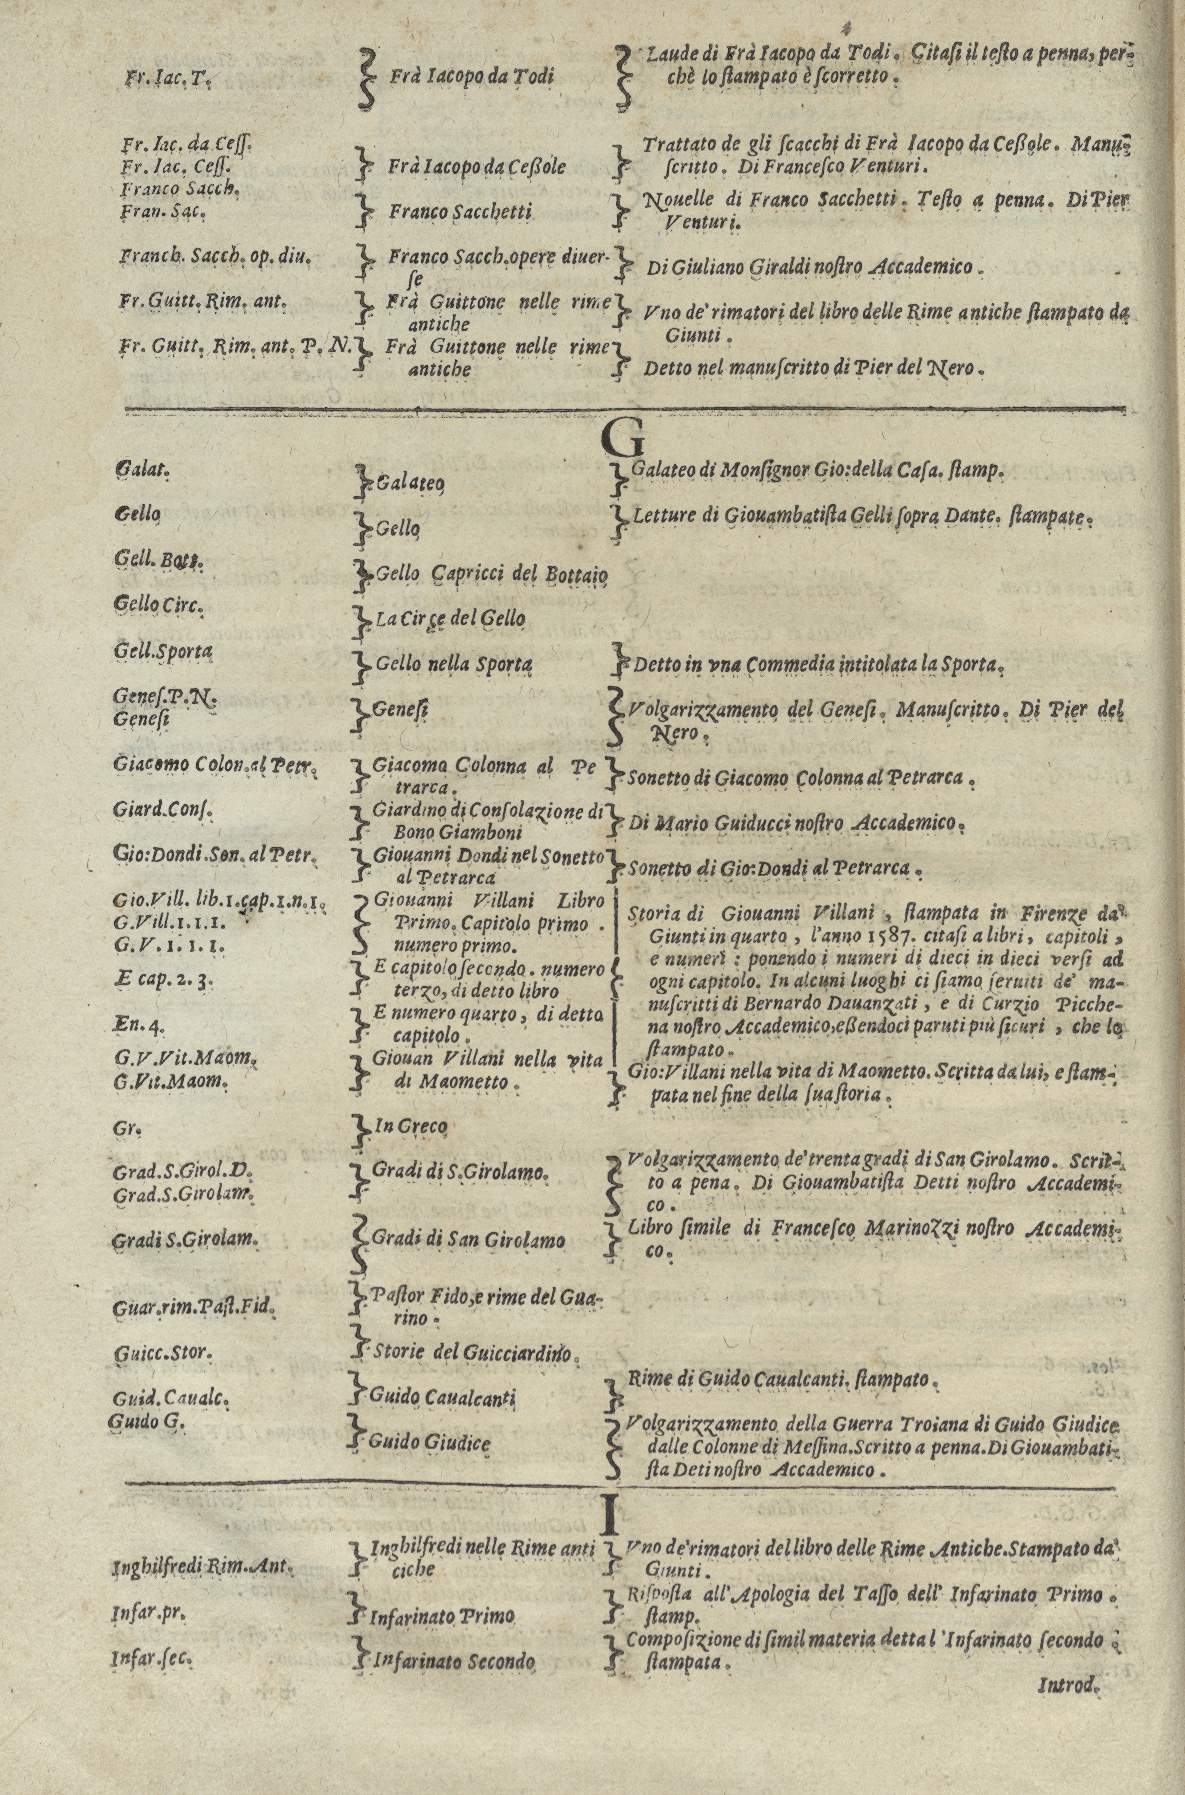 Fr. Iac. T.
Frà Iacopo da Todi
Laude di Frà Iacopo da Todi. Citaſi il teſto a penna, per-
chè lo ſtampato è ſcorretto.
Fr. Iac. da Ceſſ.
Fr. Iac. Ceſſ.
Frà Iacopo da Ceßole
Trattato de gli ſcacchi di Frà Iacopo da Ceßole. Manu-
ſcritto. Di Franceſco Venturi.
Franco Sacch.
Fran. Sac.
Franco Sacchetti
Nouelle di Franco Sacchetti. Teſto a penna. Di Pier
Venturi.
Franch. Sacch. op. diu.
Franco Sacch. opere diuer-
ſe
Di Giuliano Giraldi noſtro Accademico.
Fr. Guitt. Rim. ant.
Frà Guittone nelle rime
antiche
Vno de' rimatori del libro delle Rime antiche ſtampato da
Giunti.
Fr. Guitt. Rim. ant. P. N.
Frà Guittone nelle rime
antiche
Detto nel manuſcritto di Pier del Nero.
G
Galat.
Galateo
Galateo di Monſignor Gio: della Caſa. ſtamp.
Gello
Gello
Letture di Giouambatiſta Gelli ſopra Dante. ſtampate.
Gell. Bott.
Gello Capricci del Bottaio
Gello Circ.
La Circe del Gello
Gell. Sporta
Gello nella Sporta
Detto in vna Commedia intitolata la Sporta.
Geneſ. P. N.
Geneſi
Geneſi
Volgarizzamento del Geneſi. Manuſcritto. Di Pier del
Nero.
Giacomo Colon. al Petr.
Giacomo Colonna al Pe
trarca.
Sonetto di Giacomo Colonna al Petrarca.
Giard. Conſ.
Giardino di Conſolazione di
Bono Giamboni
Di Mario Guiducci noſtro Accademico.
Gio: Dondi. Son. al Petr.
Giouanni Dondi nel Sonetto
al Petrarca
Sonetto di Gio: Dondi al Petrarca.
Gio. Vill. lib. 1. cap. 1. n. 1.
G. Vill. 1. 1. 1.
G. V. 1. 1. 1.
Giouanni Villani Libro
Primo. Capitolo primo.
numero primo.
E cap. 2. 3.
E capitolo ſecondo. numero
terzo, di detto libro
En. 4.
E numero quarto, di detto
capitolo.
Storia di Giouanni Villani, ſtampata in Firenze da'
Giunti in quarto, l'anno 1587. citaſi a libri, capitoli,
e numeri: ponendo i numeri di dieci in dieci verſi ad
ogni capitolo. In alcuni luoghi ci ſiamo ſeruiti de' ma-
nuſcritti di Bernardo Dauanzati, e di Curzio Picche-
na noſtro Accademico, eßendoci paruti più ſicuri, che lo
ſtampato.
G. V. Vit. Maom.
G. Vit. Maom.
Giouan Villani nella vita
di Maometto.
Gio: Villani nella vita di Maometto. Scritta da lui, e ſtam-
pata nel fine della ſua ſtoria.
Gr.
In Greco
Grad. S. Girol. D.
Grad. S. Girolam.
Gradi di S. Girolamo.
Volgarizzamento de' trenta gradi di San Girolamo. Scrit-
to a pena. Di Giouambatiſta Detti noſtro Accademi-
co.
Gradi S. Girolam.
Gradi di San Girolamo
Libro ſimile di Franceſco Marinozzi noſtro Accademi-
co.
Guar. rim. Paſt. Fid.
Paſtor Fido, e rime del Gua-
rino.
Guicc. Stor.
Storie del Guicciardino.
Guid. Caualc.
Guido Caualcanti
Rime di Guido Caualcanti. ſtampato.
Guido G.
Guido Giudice
Volgarizzamento della Guerra Troiana di Guido Giudice
dalle Colonne di Meſſina. Scritto a penna. Di Giouambati-
ſta Deti noſtro Accademico.
I
Inghilfredi Rim. Ant.
Inghilfredi nelle Rime anti
ciche
Vno de' rimatori del libro delle Rime Antiche. Stampato da'
Giunti.
Infar. pr.
Infarinato Primo
Riſpoſta all'Apologia del Taſſo dell'Infarinato Primo.
ſtamp.
Infar. ſec.
Infarinato Secondo
Compoſizione di ſimil materia detta l'Infarinato ſecondo
ſtampata.
Introd.